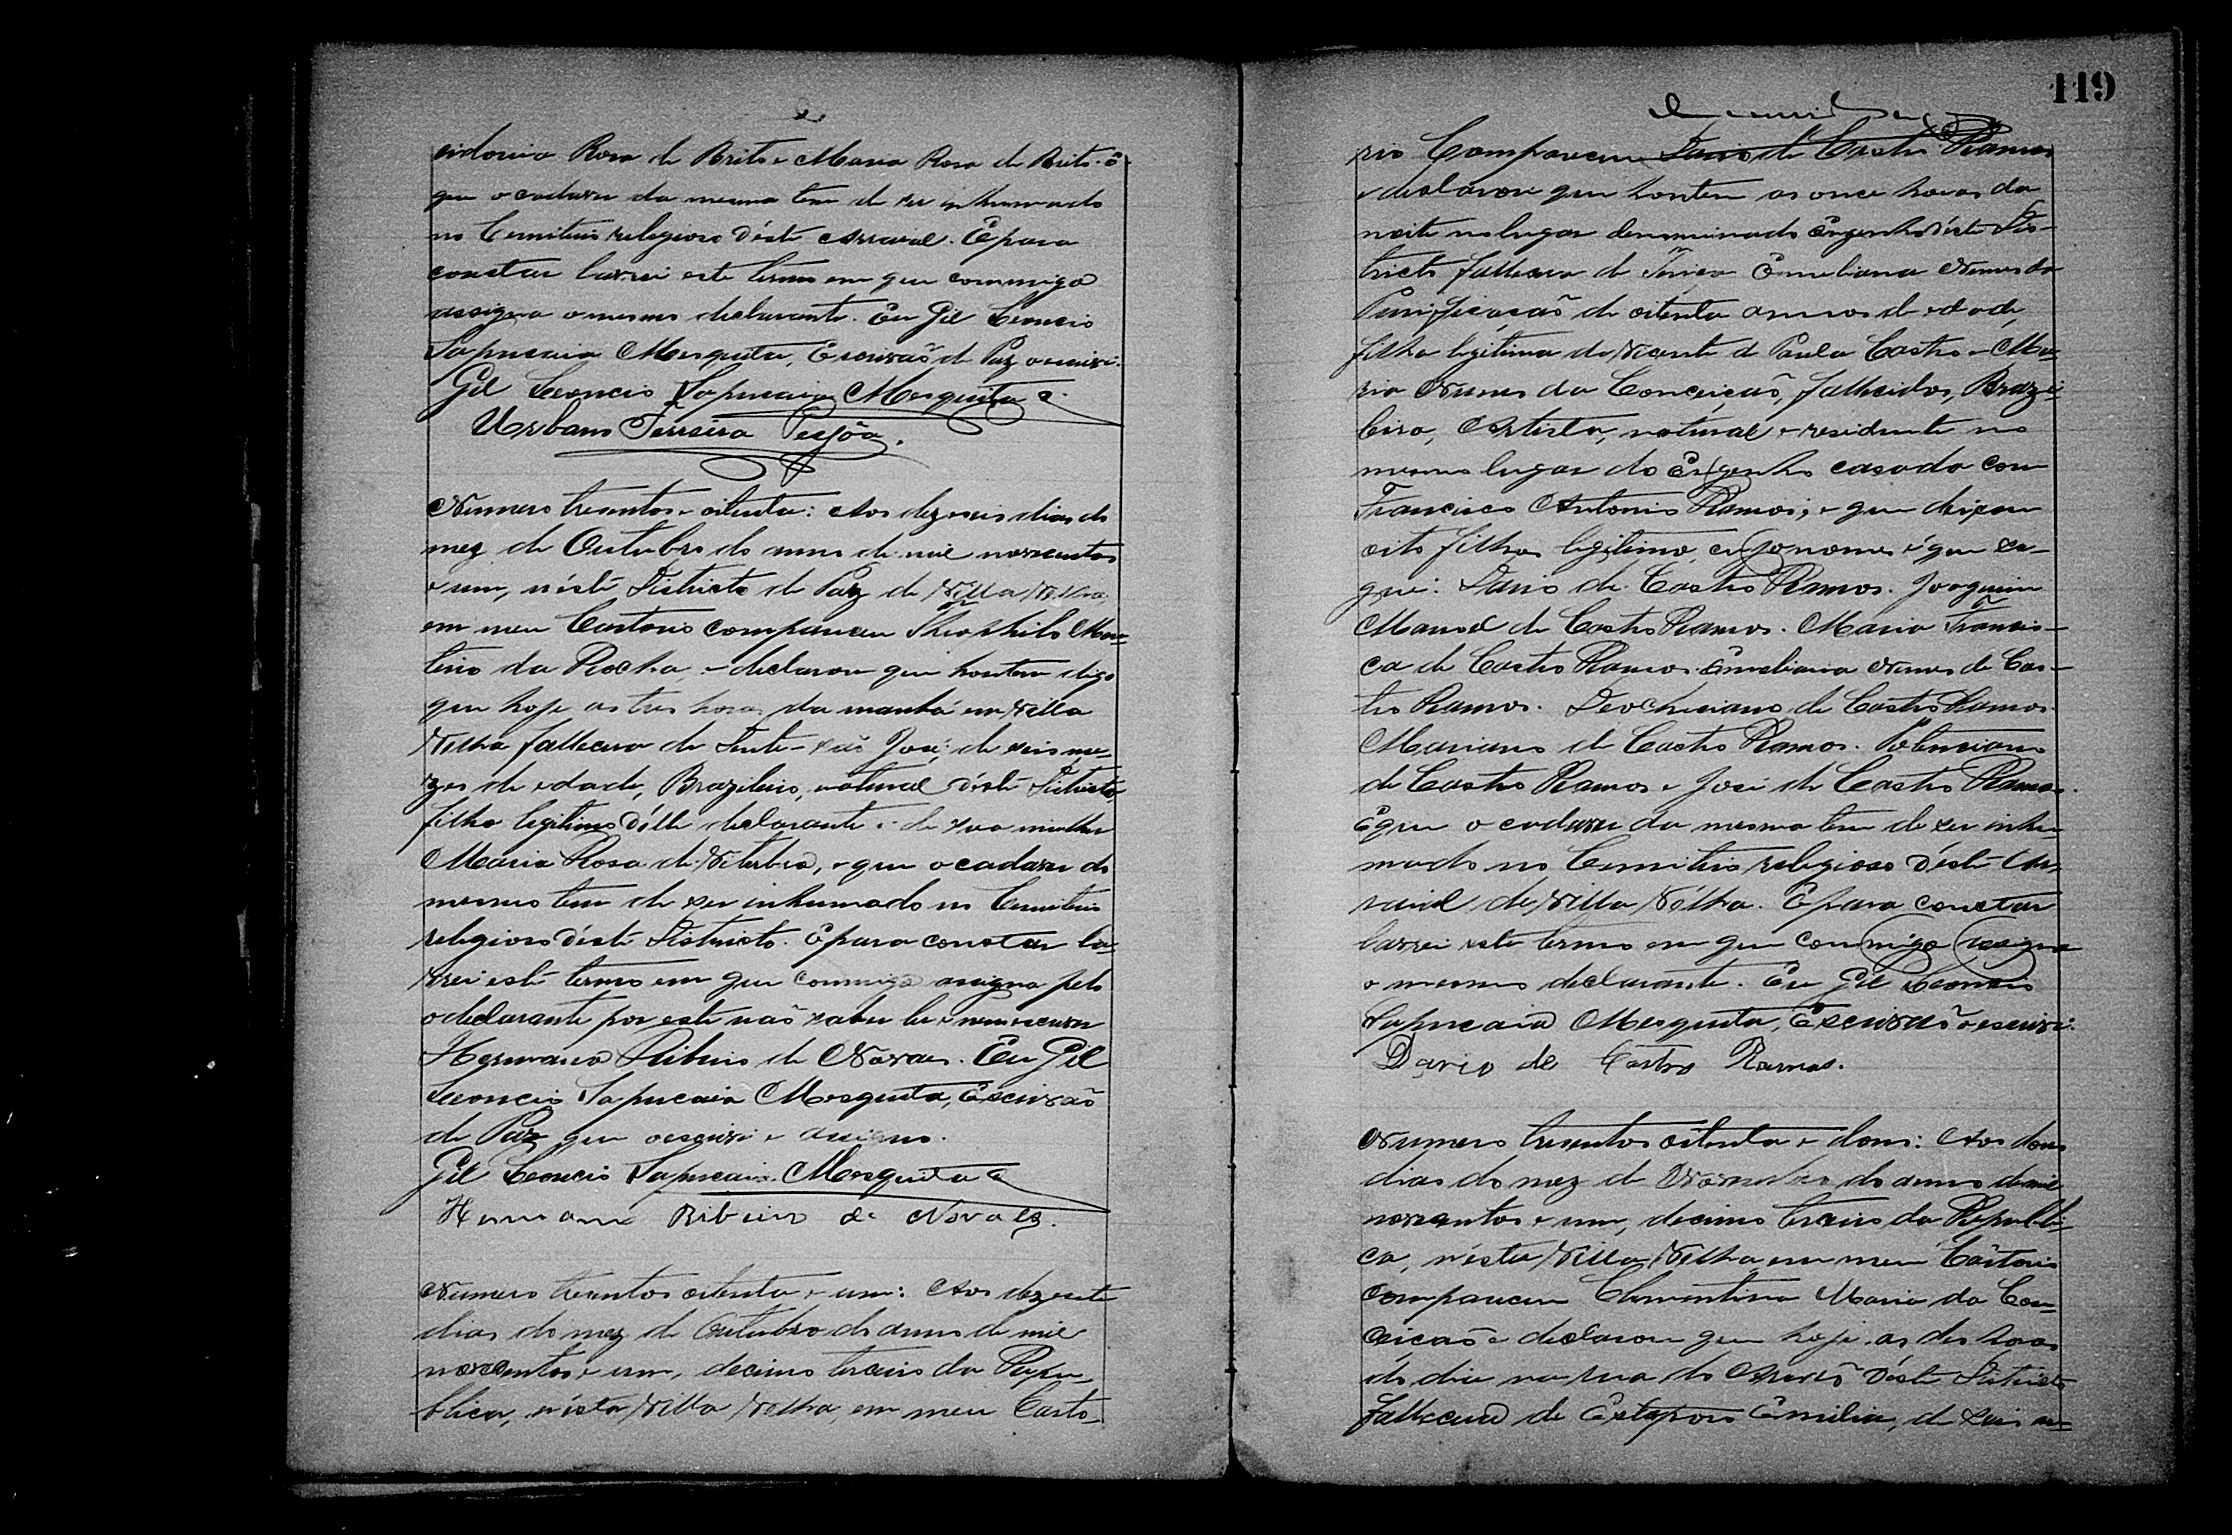 cidonia Rosa de Brito e Maria Rosa de Brito. E
que o cadaver da mesma tem de ser inhumado
no Cemiterio religioso d'éste Arraial. E para
constar lavrei este termo em que commigo
assigna o mesmo declarante. Eu Gil Leoncio
Sapucaia Mesquita, Escrivão de Paz o escrivi.
Gil Leoncio Sapucaia Mesquita
Urbano Ferreira Pessôa.
Numero tresentos e oitenta: Aos dezeseis dias do
mez de Outubro do anno de mil novecentos
e um, n'éste Districto de Paz de Villa Velha,
em meu Cartorio compareceu Theophilo Mar-
tins da Rocha, e declarou que hontem digo
que hoje as tres horas da manhã em Villa
Velha falleceu de José, de seis me-
zes de edade, Brazileiro, natural d'éste Districto,
filho legitimo d'élle declarante e de sua mulher
Maria Rosa de Viterbo, e que o cadaver do
mesmo tem de ser inhumado no Cemiterio
religioso d'éste Districto. E para constar la-
vrei este termo em que commigo assigna pelo
o declarante por este não saber ler e nem escrever
Hermano Ribeiro de Novaes. Eu Gil
Leoncio Sapucaia Mesquita, Escrivão
de Paz que o escrivi e assigno.
Gil Leoncio Sapucaia Mesquita
Hermano Ribeiro de Novaes.
Numero tresentos oitenta e um: Aos dezesete
dias do mez de Outubro do anno de mil
novecentos e um, decimo terceiro da Repu-
blica, n'ésta Villa Velha, em meu Carto-
119
rio Compareceu Dario de Castro Ramos
e declarou que hontem as onze horas da
noite no lugar denominado Engenho d'éste Dis-
tricto falleceu de Emeliana Nunes da
Purificação de oitenta annos de edade,
filha legitima de Vicente de Paula Castro e Ma-
ria Nunes da Conceição, fallecidos, Brazi-
leira, Artista, natural e residente no
mesmo lugar do Engenho casada com
Francisco Antonio Ramos, e que deixou
oito filhos legitimo, cujo nomes é que se-
gue: Dario de Castro Ramos. Joaquim
Manoel de Castro Ramos. Maria Francis-
ca de Castro Ramos. Emeliana Nunes de Cas-
tro Ramos. Deocleciano de Castro Ramos.
Mariano de Castro Ramos. Potenciano
de Castro Ramos e José de Castro Ramos.
E que o cadaver da mesma tem de ser inhu-
mado no Cemiterio religioso d'éste Ar-
raial de Villa Vélha. E para constar
lavrei este termo em que commigo assigna
o mesmo declarante. Eu Gil Leoncio
Sapucaia Mesquita, Escrivão o escrivi.
Dario de Castro Ramos.
Numero tresentos oitenta e dous: Aos dous
dias do mez de Novembro do anno de mil
novecentos e um, decimo terceiro da Republi-
ca, n'ésta Villa Velha em meu Cartorio
compareceu Clementina Maria da Con-
ceição e declarou que hoje as des horas
do dia na rua do d'éste Districto
falleceu de Emilia, de seis me-